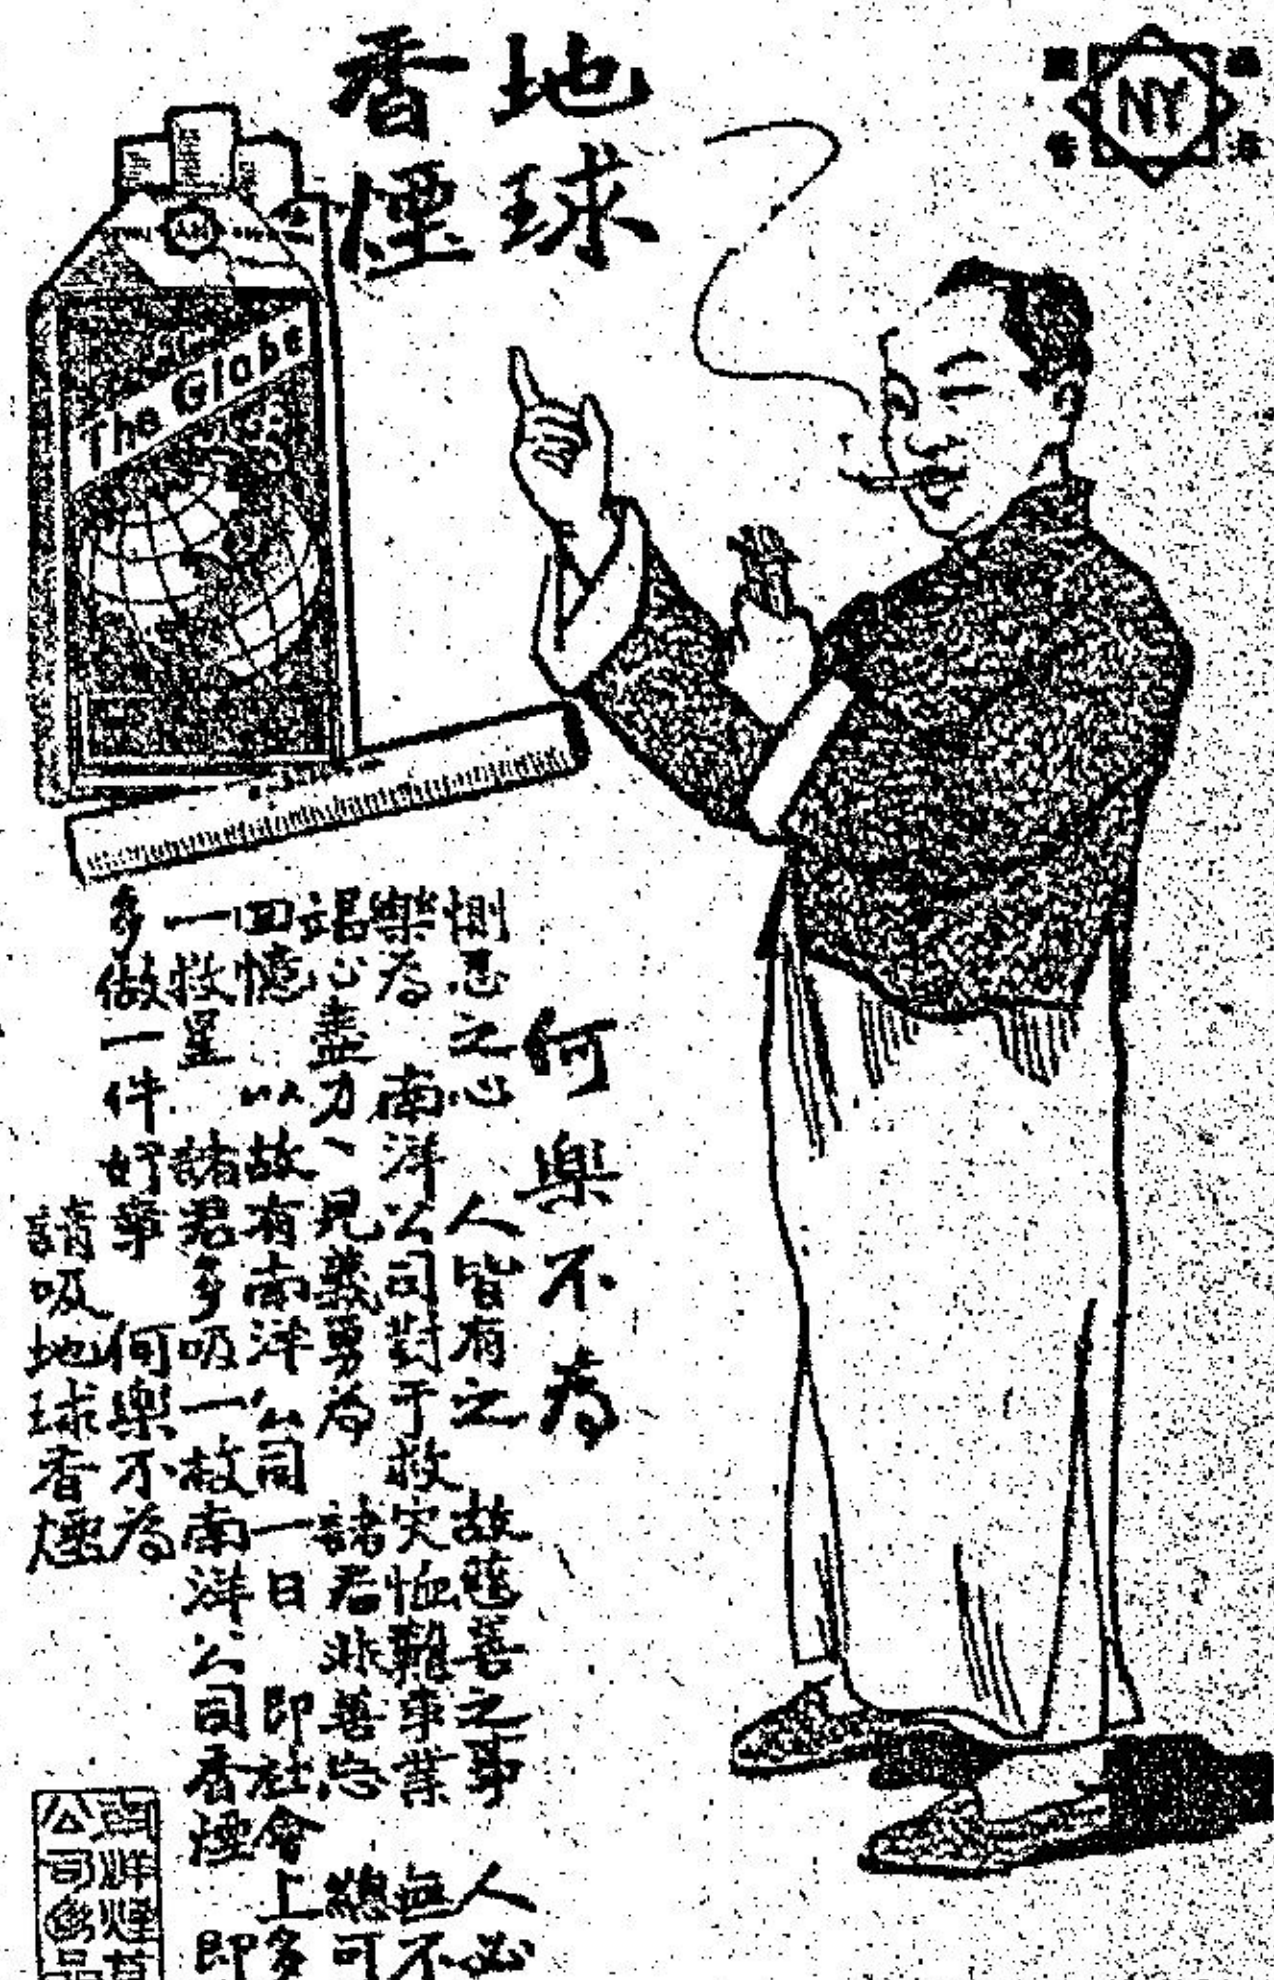 NY
地球
香煙
The Globe
何樂不為
惻忍之心 人皆有之 故慈善之事 人必
樂為 南洋公司對于救灾恤難事業 無不
竭心盡力、見義勇為 諸君非善忘 總可
回憶 以故有南洋公司一日 即社會上多
一救星 諸君多吸一枝南洋公司香煙 即
多做一件好事 何樂不為
請吸地球香煙
南洋煙草
公司